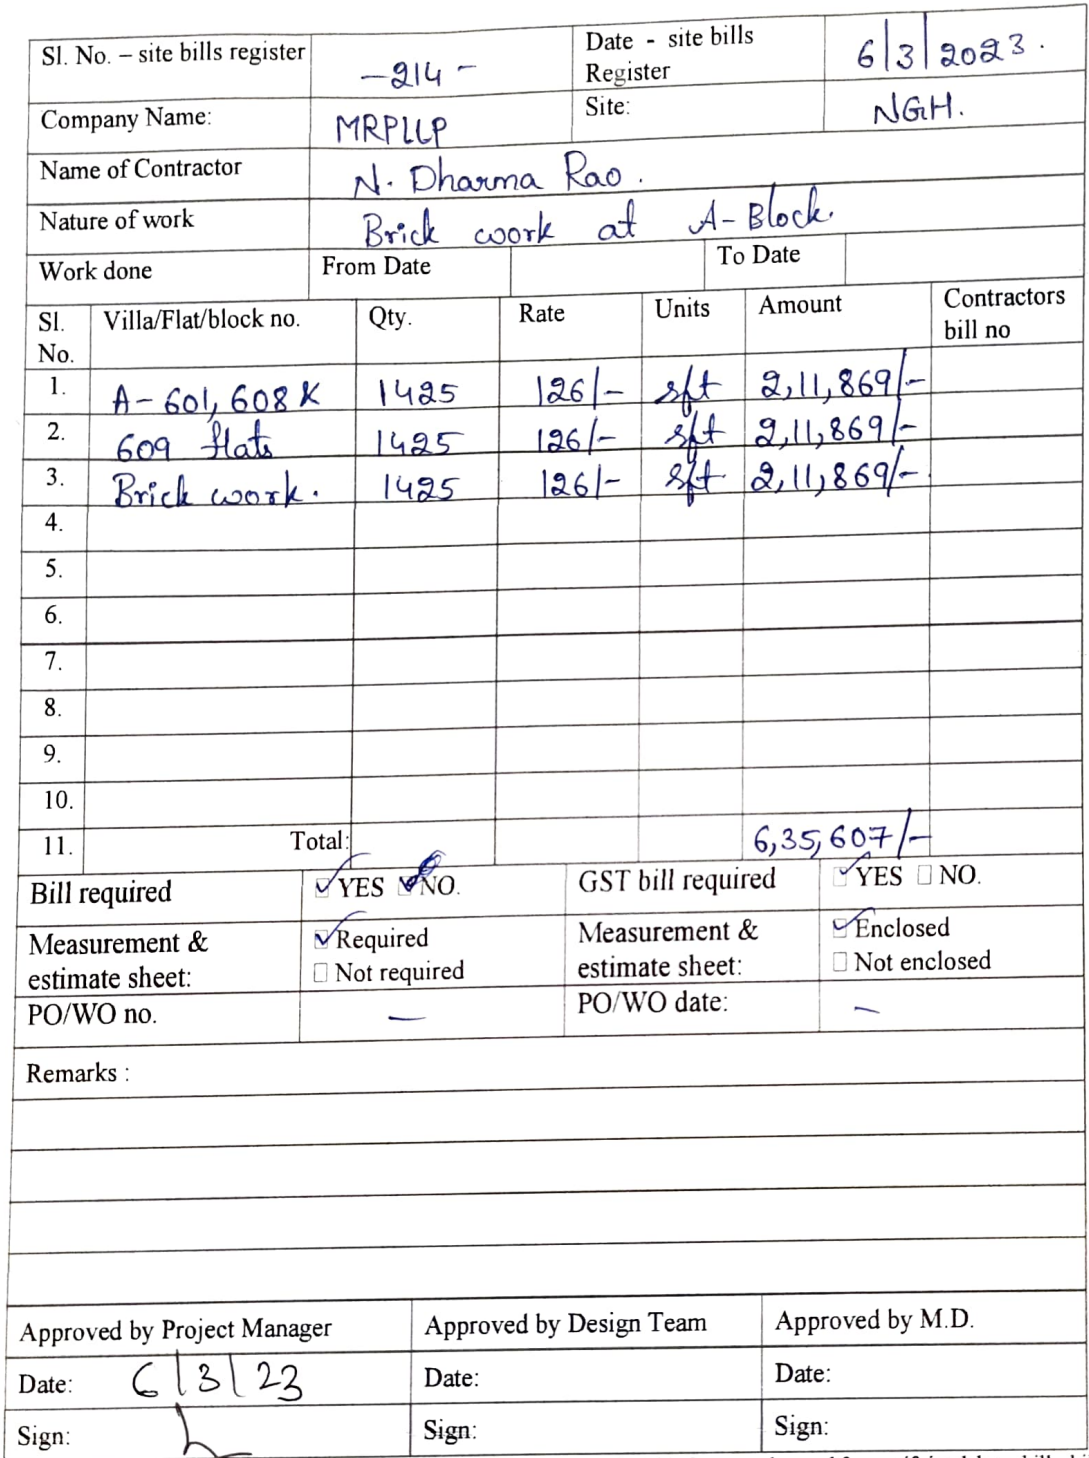 Sl. No. – site bills register -214- Date - site bills Register 6/3/2023.
Company Name: MRPLLP Site: NGH.
Name of Contractor N. Dharma Rao.
Nature of work Brick work at A-Block.
Work done From Date To Date
Sl. No. Villa/Flat/block no. Qty. Rate Units Amount Contractors bill no
1. A-601, 608 & 1425 126/- sft 2,11,869/-
2. 609 flats 1425 126/- sft 2,11,869/-
3. Brick work. 1425 126/- sft 2,11,869/-
4.
5.
6.
7.
8.
9.
10.
11. Total: 6,35,607/-
Bill required YES NO. GST bill required YES NO.
Measurement & estimate sheet: Required Not required Measurement & estimate sheet: Enclosed Not enclosed
PO/WO no. — PO/WO date: —
Remarks :
Approved by Project Manager Approved by Design Team Approved by M.D.
Date: 6/3/23 Date: Date:
Sign: Sign: Sign: